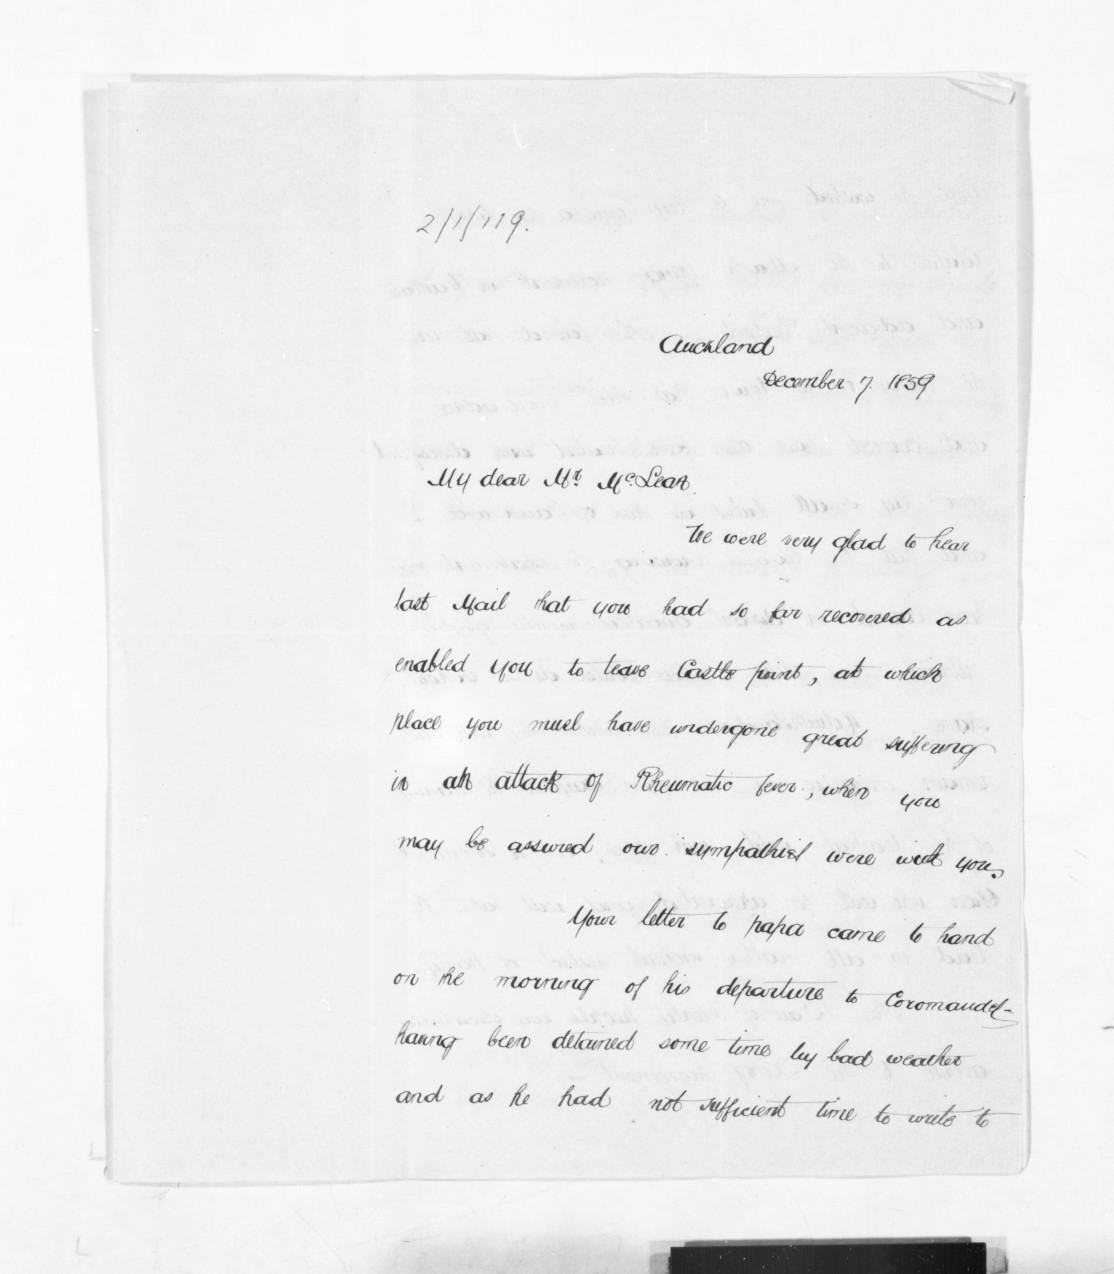 2/1/119.
Auckland
December 7. 1859
My dear Mr. McLean.
We were very glad to hear
last Mail that you had so far recovered as
enabled you to leave Castle point, at which
place you must have undergone great suffering
in an attack of Rheumatic fever, when you
may be assured our sympathies were with you.
Your letter to papa came to hand
on the morning of his departure to Coromandel-
having been detained some time by bad weather
and as he had not sufficient time to write to